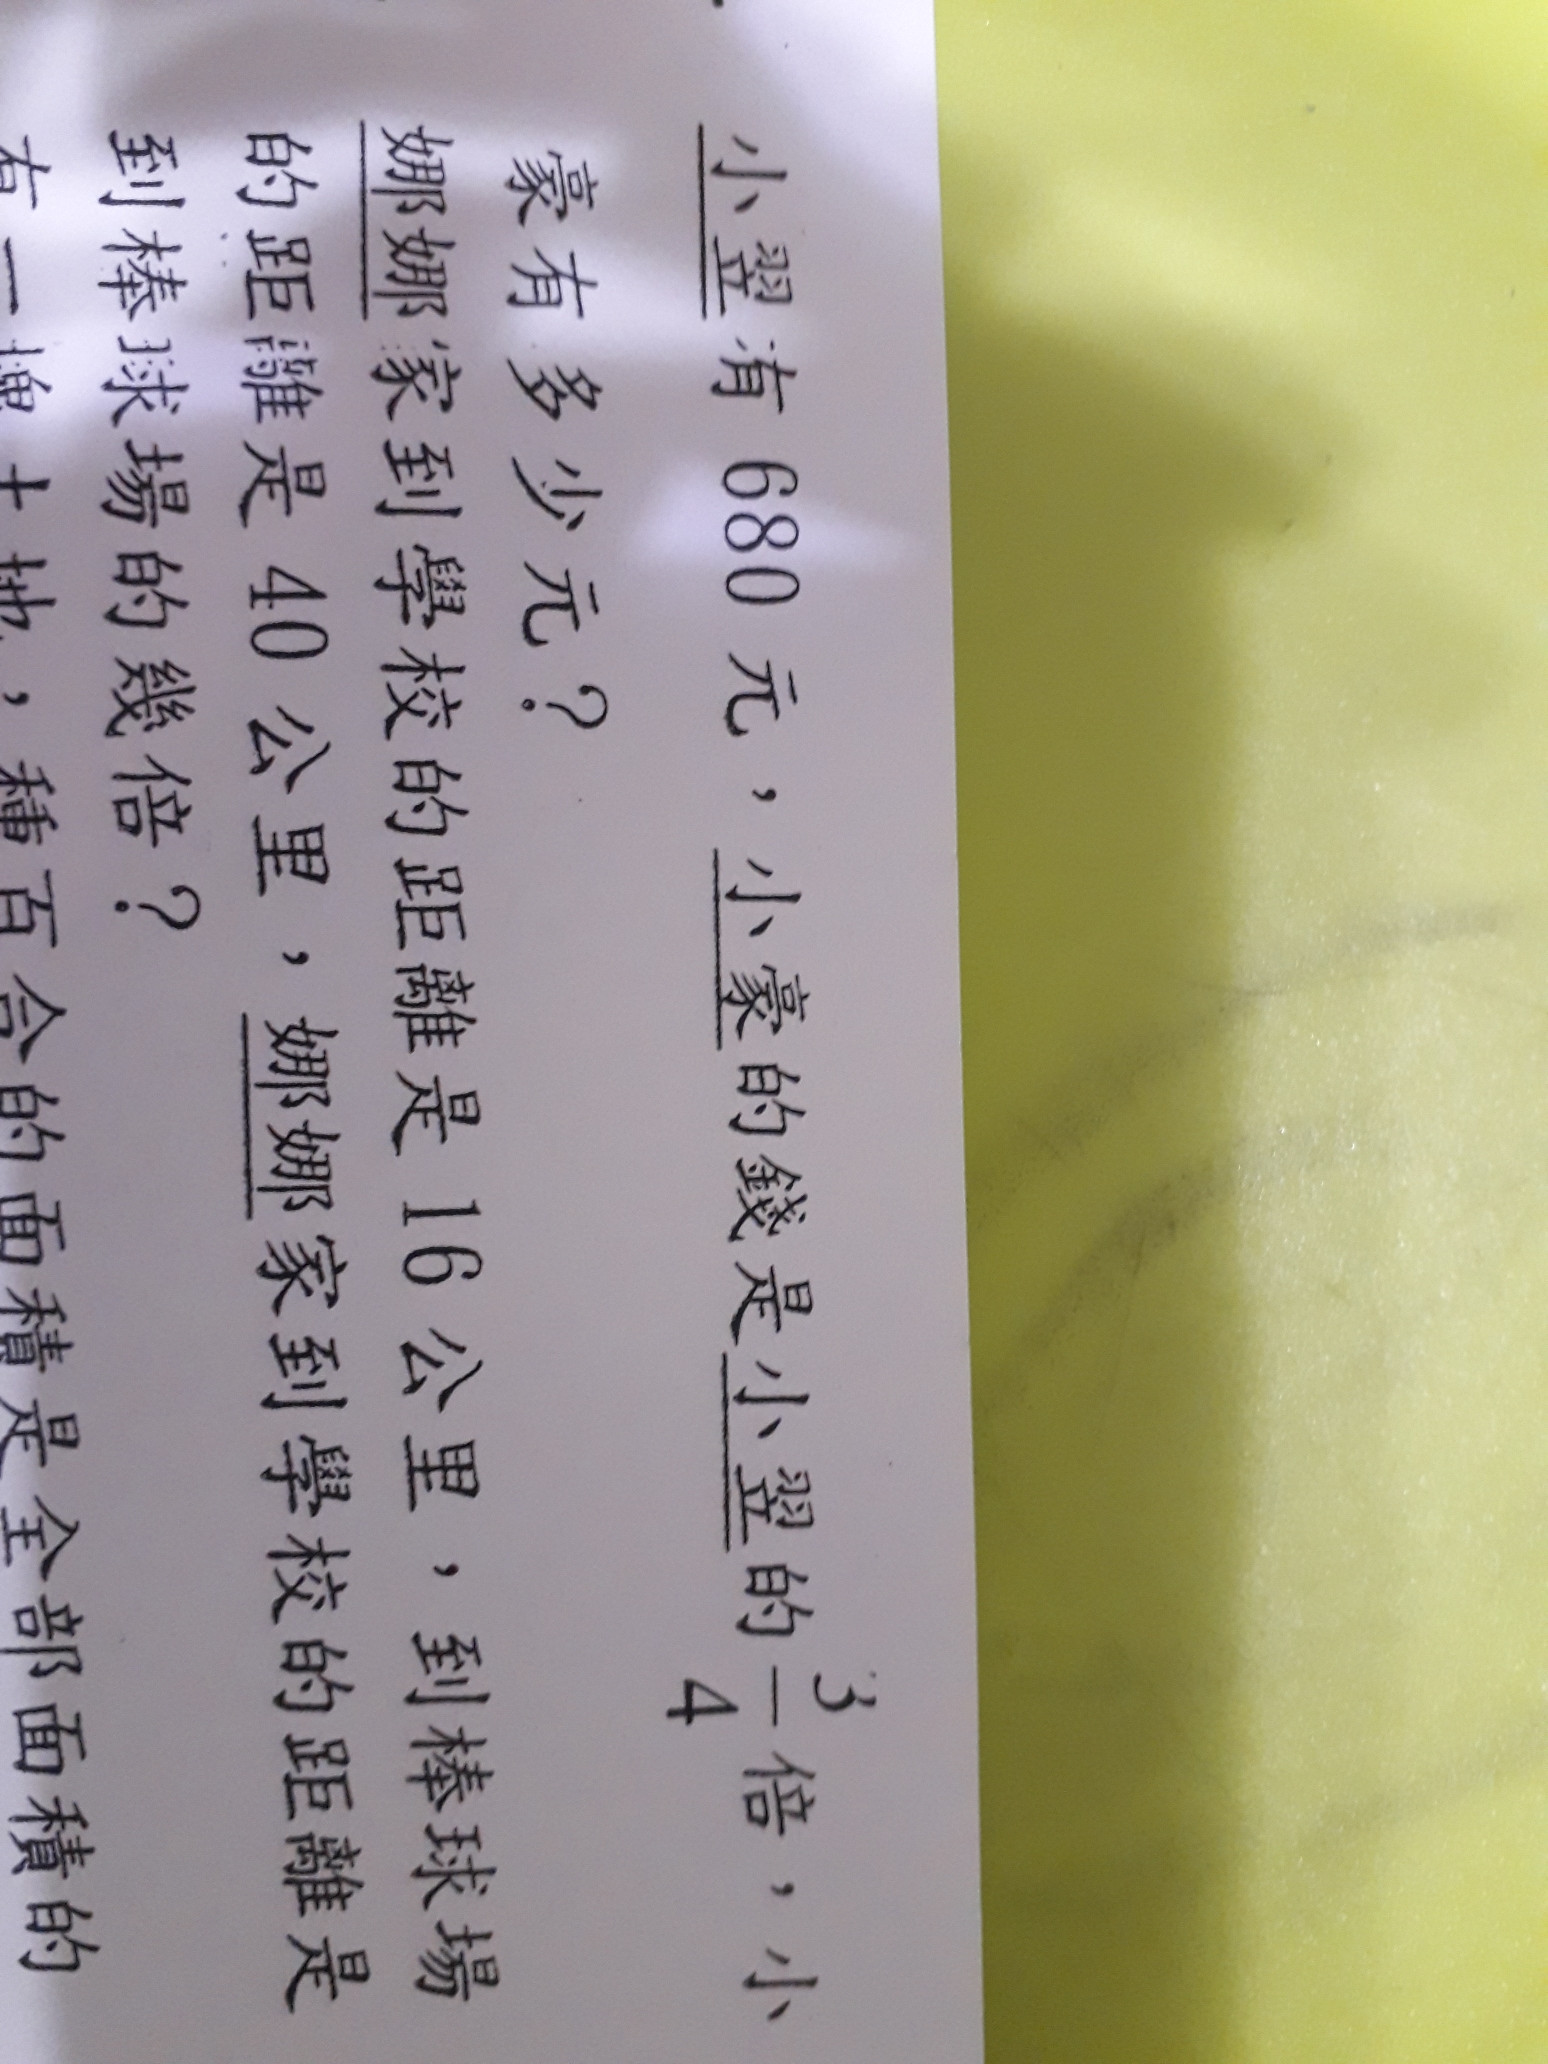 小翌有 680 元，小豪的錢是小翌的 3/4 倍，小
豪有多少元？
娜娜家到學校的距離是 16 公里，到棒球場
的距離是 40 公里，娜娜家到學校的距離是
到棒球場的幾倍？
有一塊土地，種百合的面積是全部面積的